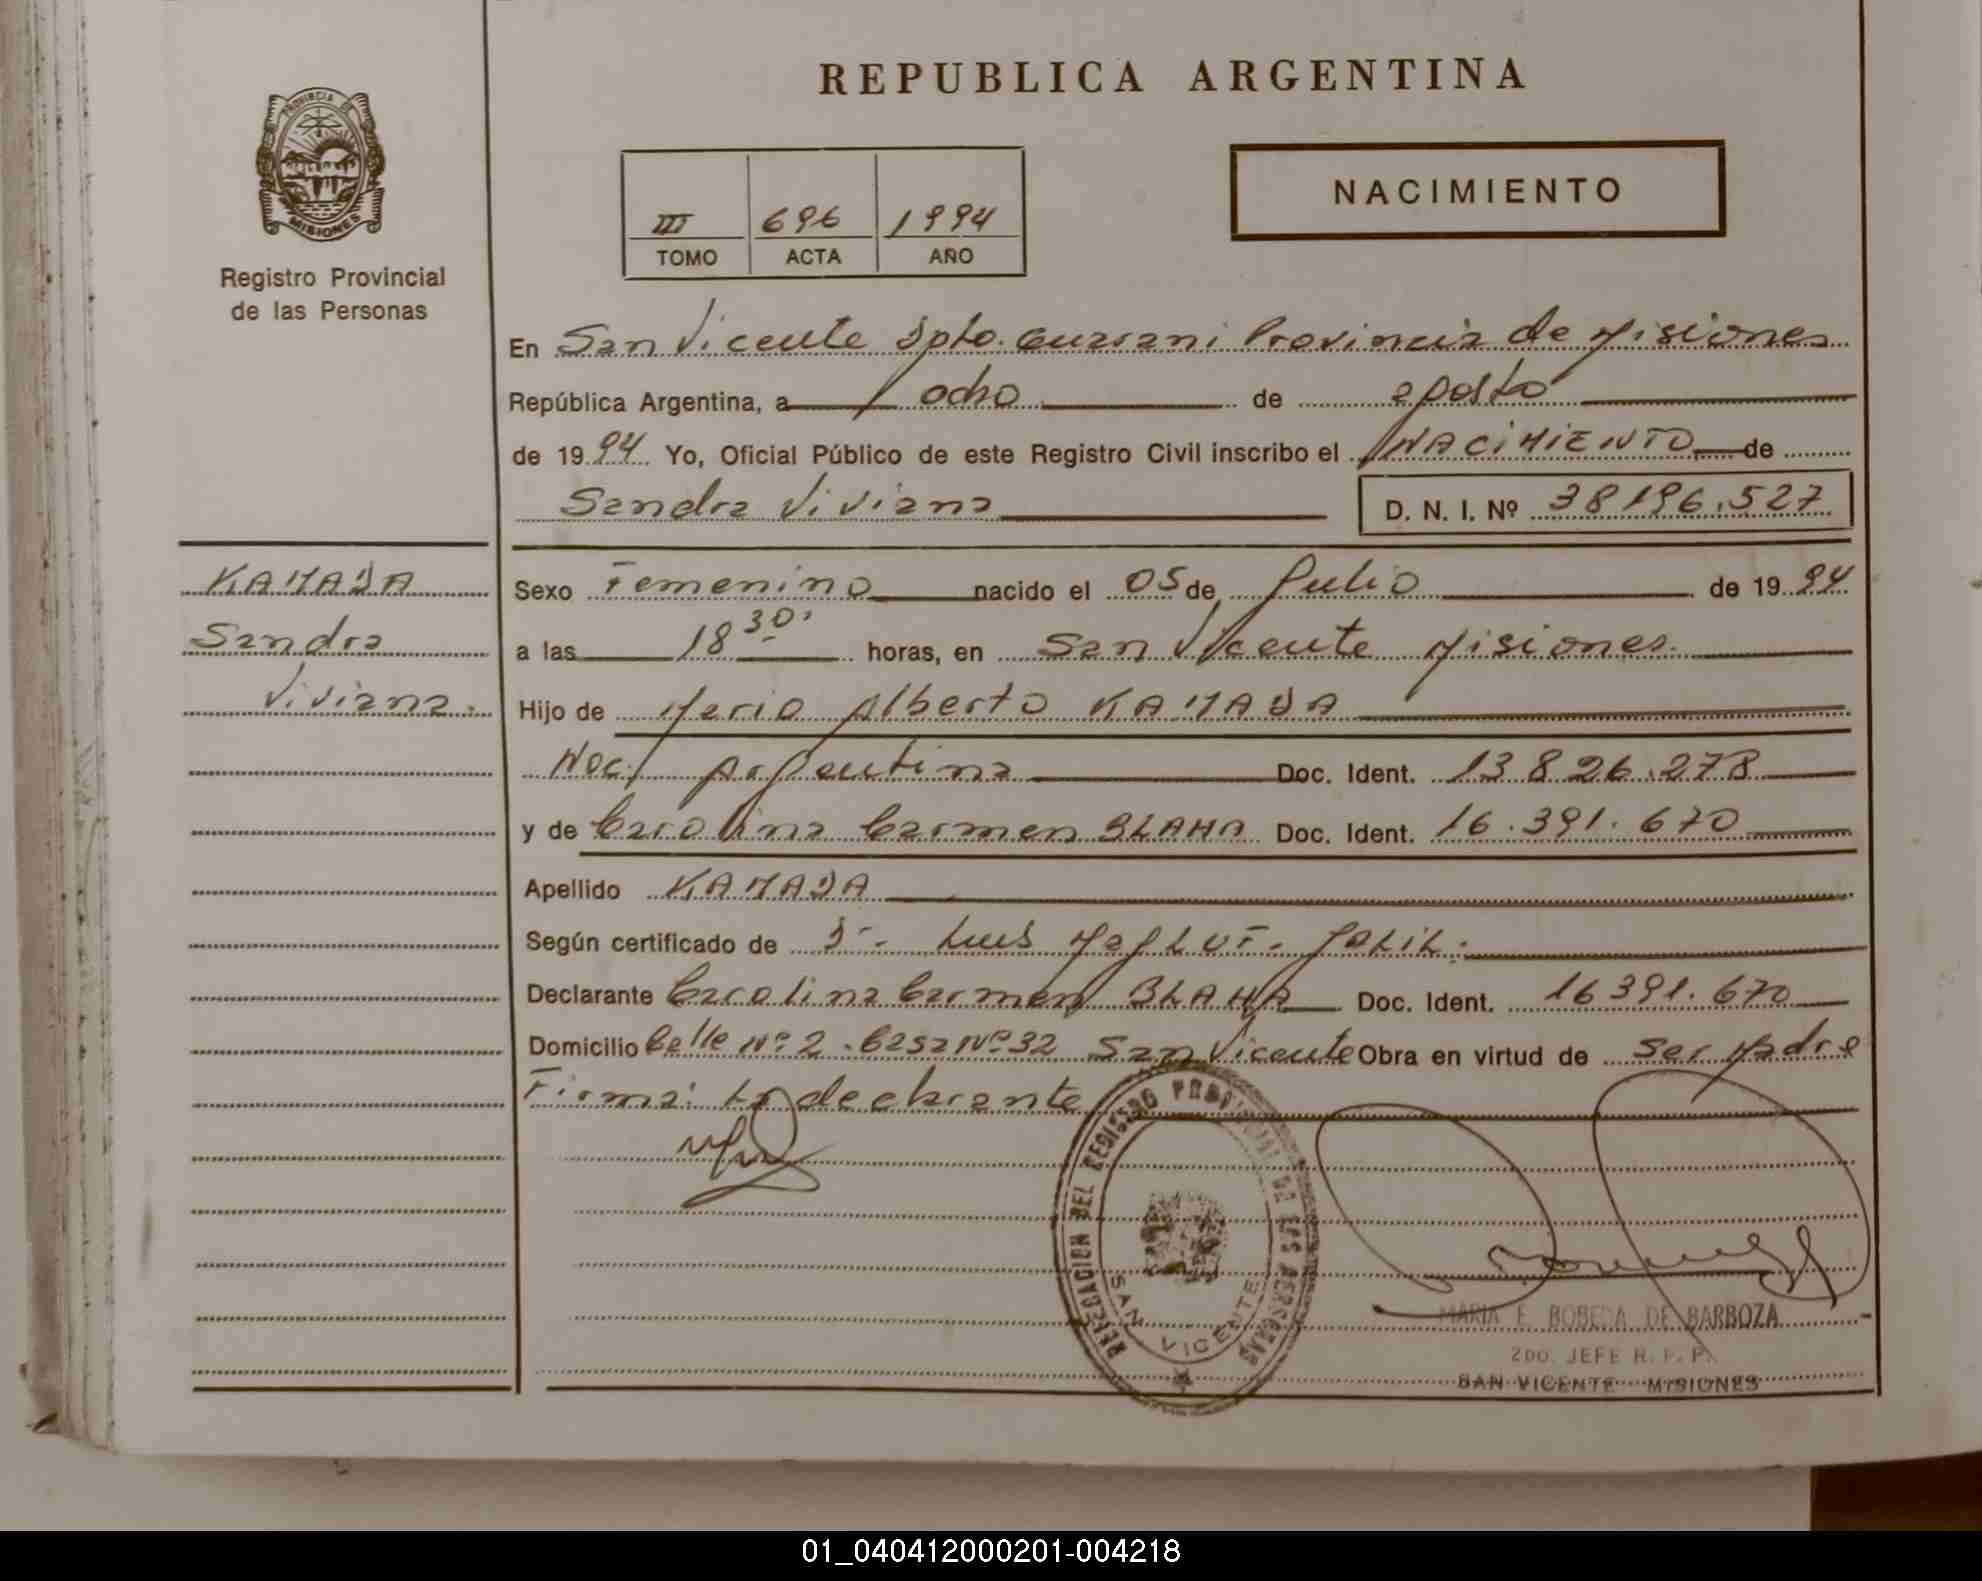 REPUBLICA ARGENTINA
PROVINCIA DE
MISIONES
Registro Provincial
de las Personas
III 696 1994
TOMO ACTA AÑO
NACIMIENTO
En San Vicente Dpto. Guarani Provincia de Misiones
República Argentina, a ocho de agosto
de 1994 Yo, Oficial Público de este Registro Civil inscribo el NACIMIENTO de
Sandra Viviana D. N. I. Nº 38196.527
KAMADA
Sandra
Viviana.
Sexo Femenino nacido el 05 de Julio de 1994
a las 18 30' horas, en San Vicente Misiones.
Hijo de Mario Alberto KAMADA
Nac. Argentina Doc. Ident. 13826.278
y de Carolina Carmen BLAHA Doc. Ident. 16.391.670
Apellido KAMADA
Según certificado de Dr. Luis
Declarante Carolina Carmen BLAHA Doc. Ident. 16391.670
Domicilio Calle Nº 2 - Casa Nº 32 San Vicente Obra en virtud de ser Madre
Firma: La declarante
DELEGACION DEL REGISTRO PROVINCIAL DE LAS PERSONAS
SAN VICENTE
MARIA E. BOBEDA DE BARBOZA
2DO. JEFE R. P. P.
SAN VICENTE - MISIONES
01_040412000201-004218